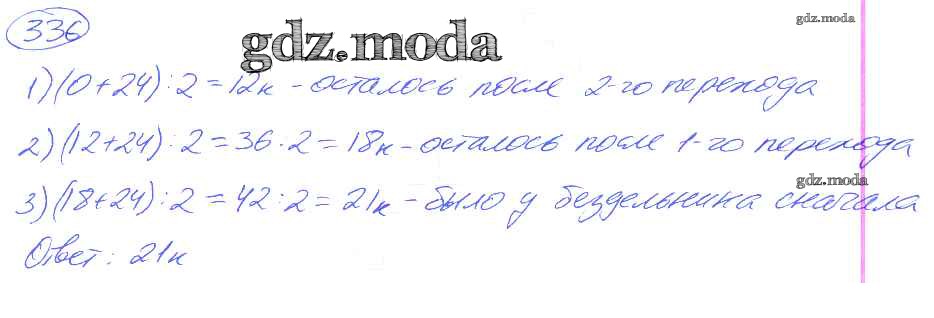 336
gdz.moda
gdz.moda
1) (0+24) : 2 = 12к - осталось после 2-го перехода
2) (12+24) : 2 = 36 : 2 = 18к - осталось после 1-го перехода
gdz.moda
3) (18+24) : 2 = 42 : 2 = 21к - было у бездельника сначала
Ответ: 21к